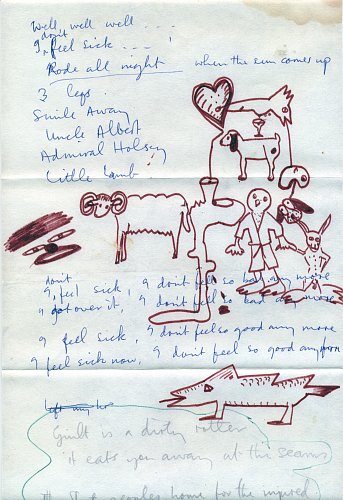 Well well well ...
I don't feel sick ... !
Rode all night when the sun comes up
3 legs.
Smile Away
Uncle Albert
Admiral Halsey
Little Lamb
I don't feel sick, I don't feel so bad any more
I got over it, I don't feel so bad any more
I feel sick, I don't feel so good any more
I feel sick now, I don't feel so good any more
Left my
Guilt is a dirty
it eats you away at the seams
peoples home for the